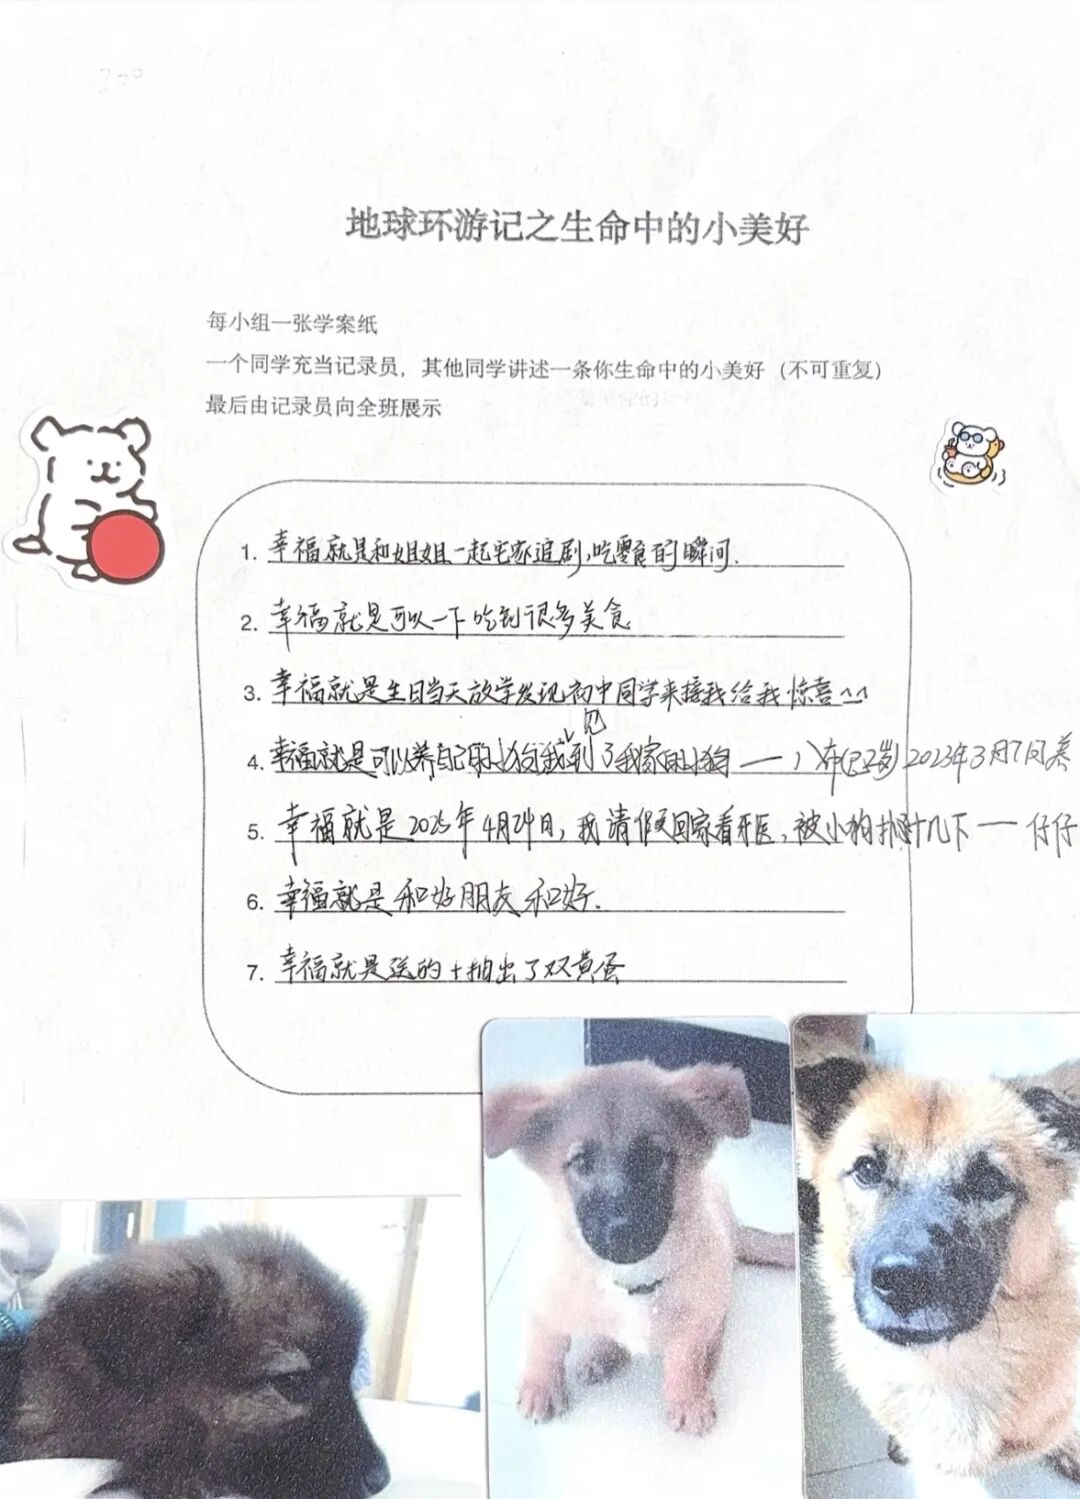 地球环游记之生命中的小美好
每小组一张学案纸
一个同学充当记录员，其他同学讲述一条你生命中的小美好（不可重复）
最后由记录员向全班展示
1. 幸福就是和姐姐一起宅家追剧,吃零食的瞬间.
2. 幸福就是可以一下吃到很多美食
3. 幸福就是生日当天放学发现初中同学来接我给我惊喜^^
见
4. 幸福就是可以养自己的小狗我到了我家的小狗 — 布(已2岁) 2023年3月7日养
5. 幸福就是2025年4月24日，我请假回家看牙医，被小狗扑倒几下 — 仔仔
6. 幸福就是和好朋友和好.
7. 幸福就是送的+抽出了双黄蛋